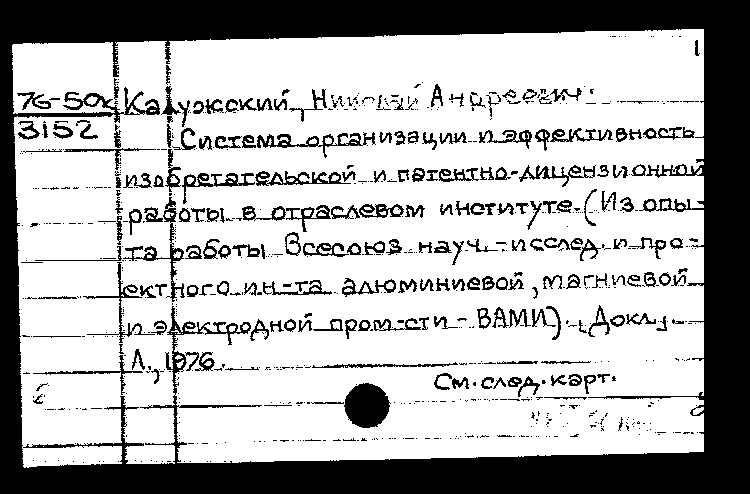 1
76-50к Калужский, Николай Андреевич.
3152
Система организации и эффективность
изобретательской и патентно-лицензионной
работы в отраслевом институте. (Из опы-
та работы Всесоюз. науч.-исслед. и про-
ектного ин-та алюминиевой, магниевой
и электродной пром-сти - ВАМИ). [Докл.].
Л., 1976.
См. след. карт.